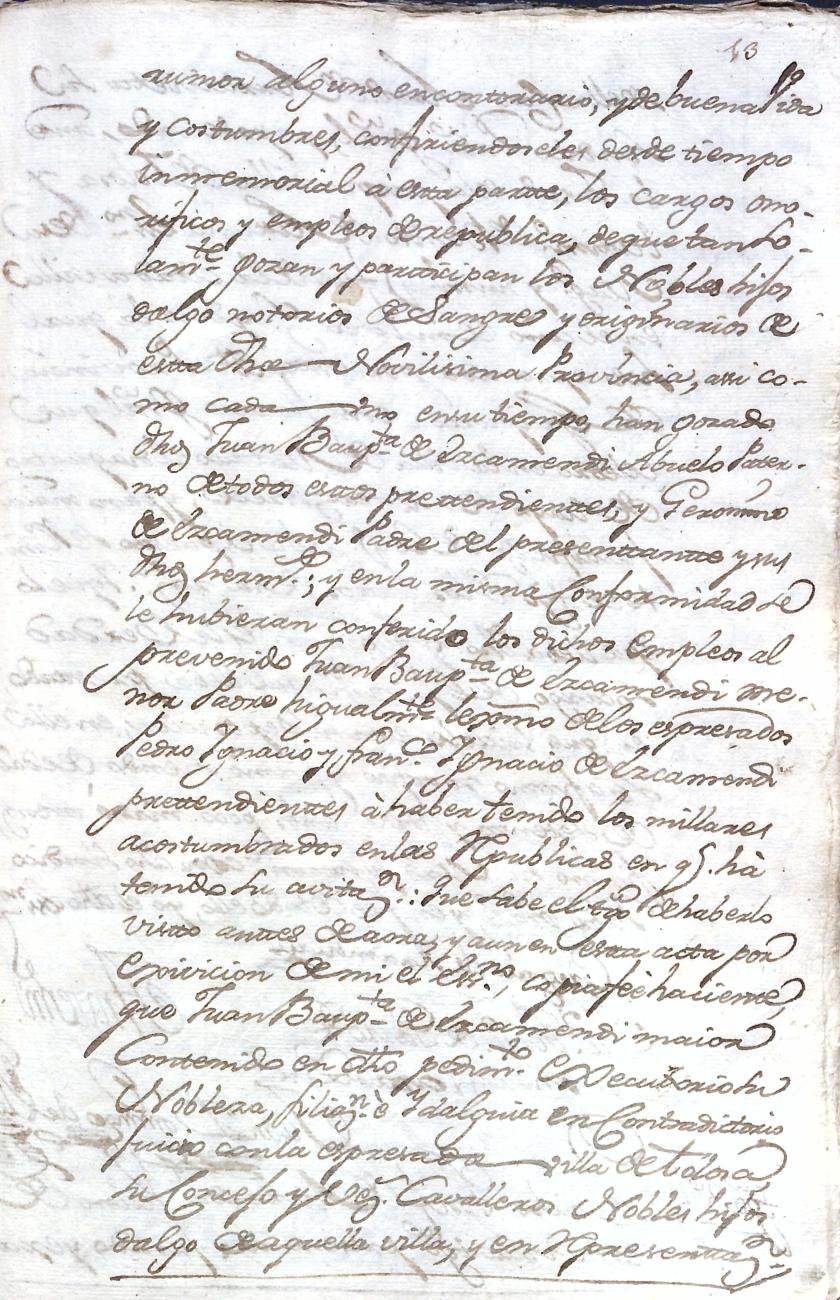 13
rumor alguno encontrario, y de buena Vida
y costumbres, confiriendoseles desde tiempo
inmemorial à esta partte, los cargos ono-
rificos y empleos de republica, de que tan so-
lamte gozan y partticipan los Nobles hijos
dalgo notorios de Sangre, y originarios de
esta dha Novilisima Provincia, assi co-
mo cada uno en su tiempo, han gozado
dhos Juan Baupta de Ezcamendi Abuelo Pater-
no de todos estos prettendientes, y Geronimo
de Ezcamendi Padre del presenttantte y sus
dhos hermos; y en la misma Conformidad se
le hubieran conferido los dichos Empleos al
prevenido Juan Baupta de Ezcamendi me-
nor Padre higualmte lexmo de los espresados
Pedro Ygnacio y Franco Ygnacio de Ezcamendi
prettendienttes à haber tenido los millares
acostumbrados enlas Republicas en q. hà
tenido su avitan.: que sabe el tgo de haberlo
vistto anttes de aora, y aun en esta acta por
exivicion de mi el Essno, copia feè haciente,
que Juan Baupta de Ezcamendi maior
Contenido en dho pedimto executorio su
Nobleza, filian. è Ydalguia en Contradictorio
Juicio con la espresada villa de Tolosa,
su Concejo y Vezs. Cavalleros Nobles hijos
dalgo de aquella villa, y en Representtan.